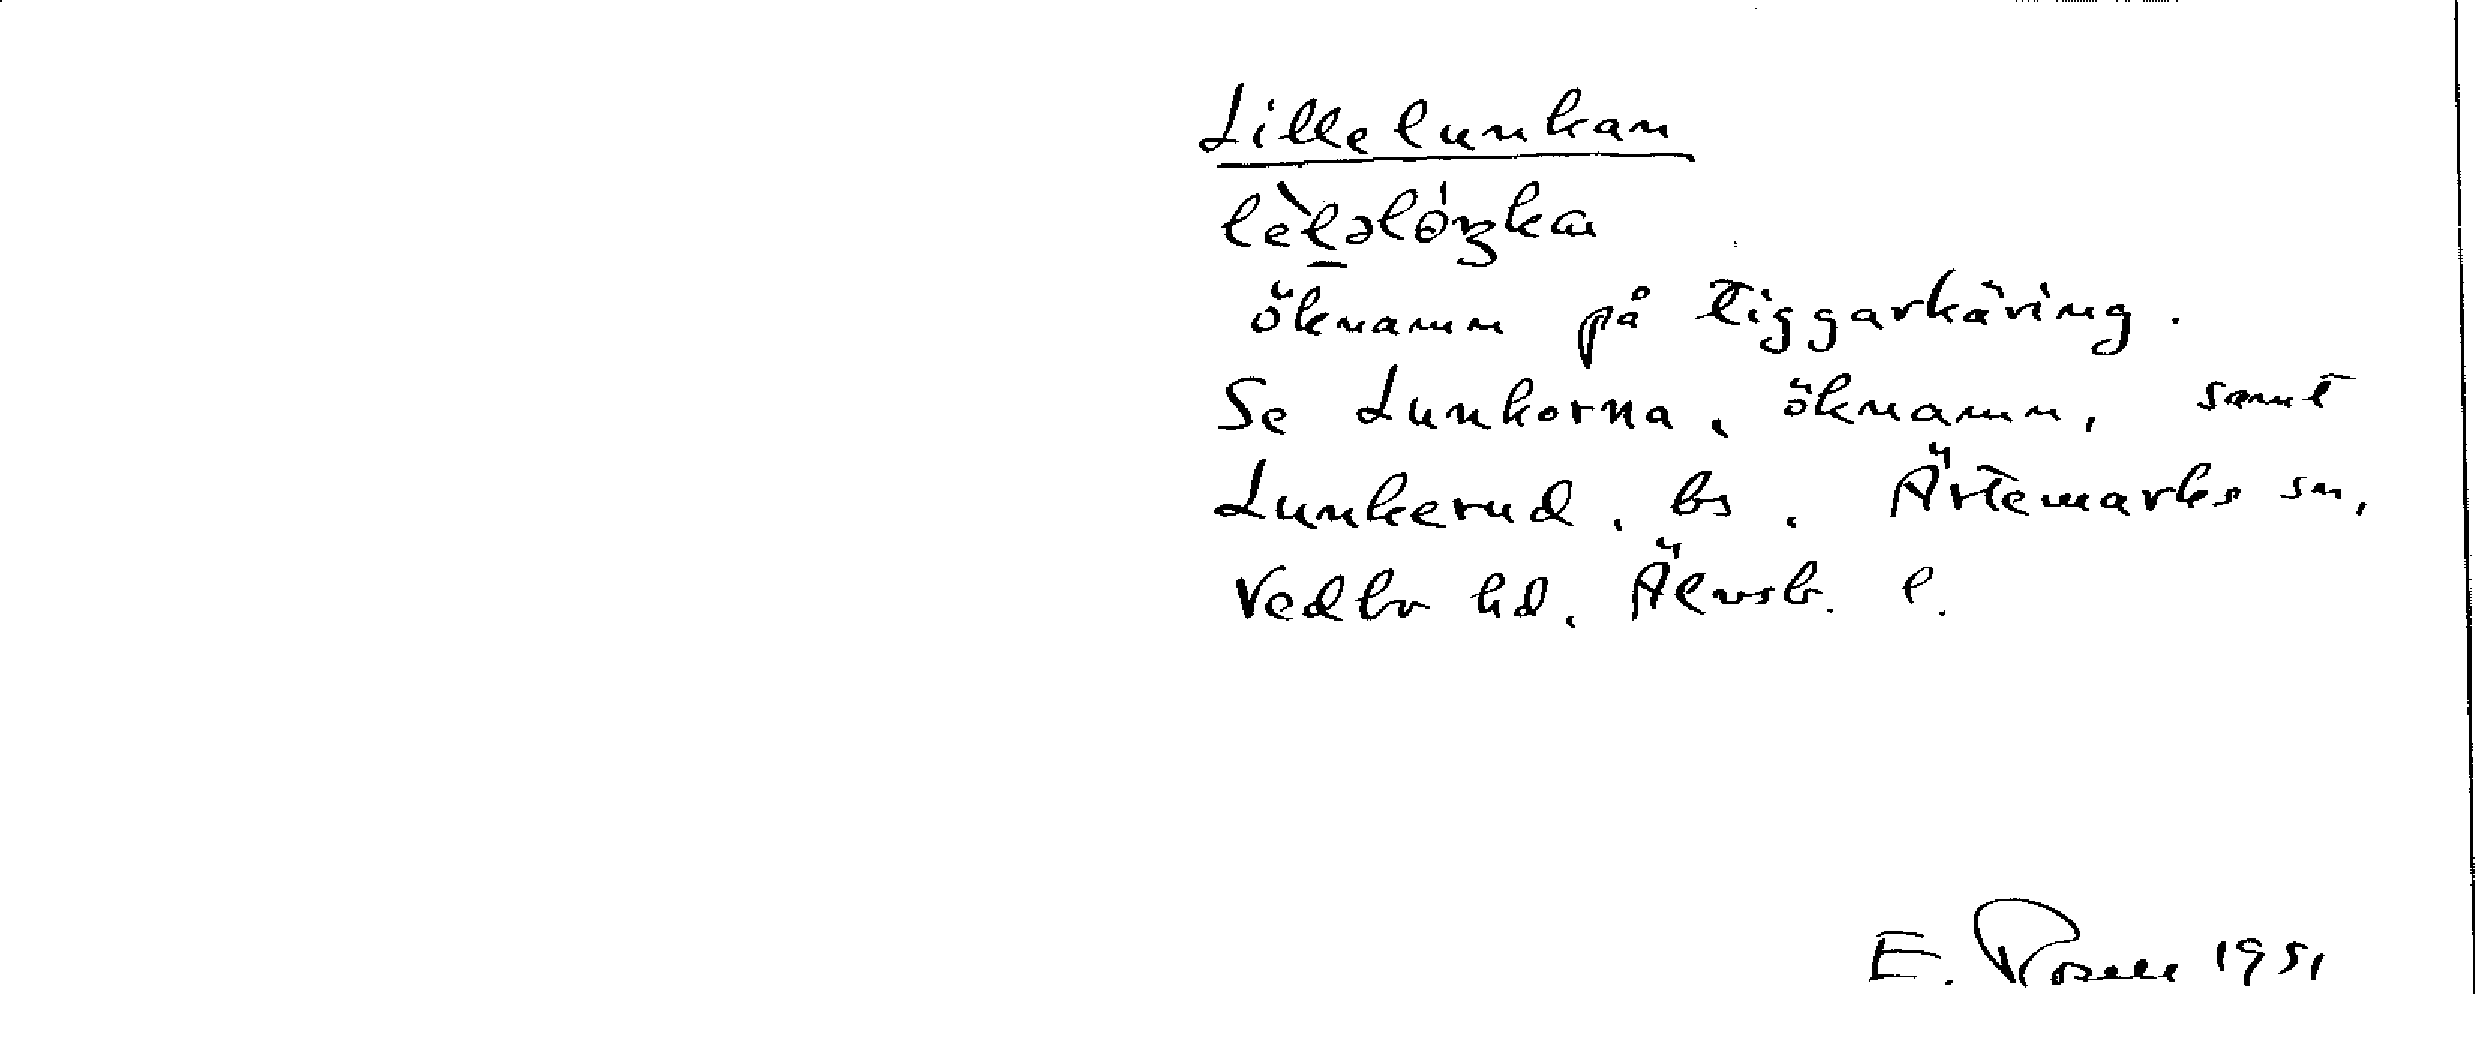 Lillelunkan
lèl̠əlóŋka
öknamn på tiggarkäring.
Se Lunkorna, öknamn, samt
Lunkerud, bs, Ärtemarks sn,
Vedbo hd, Älvsb. l.
E. Rosell 1951